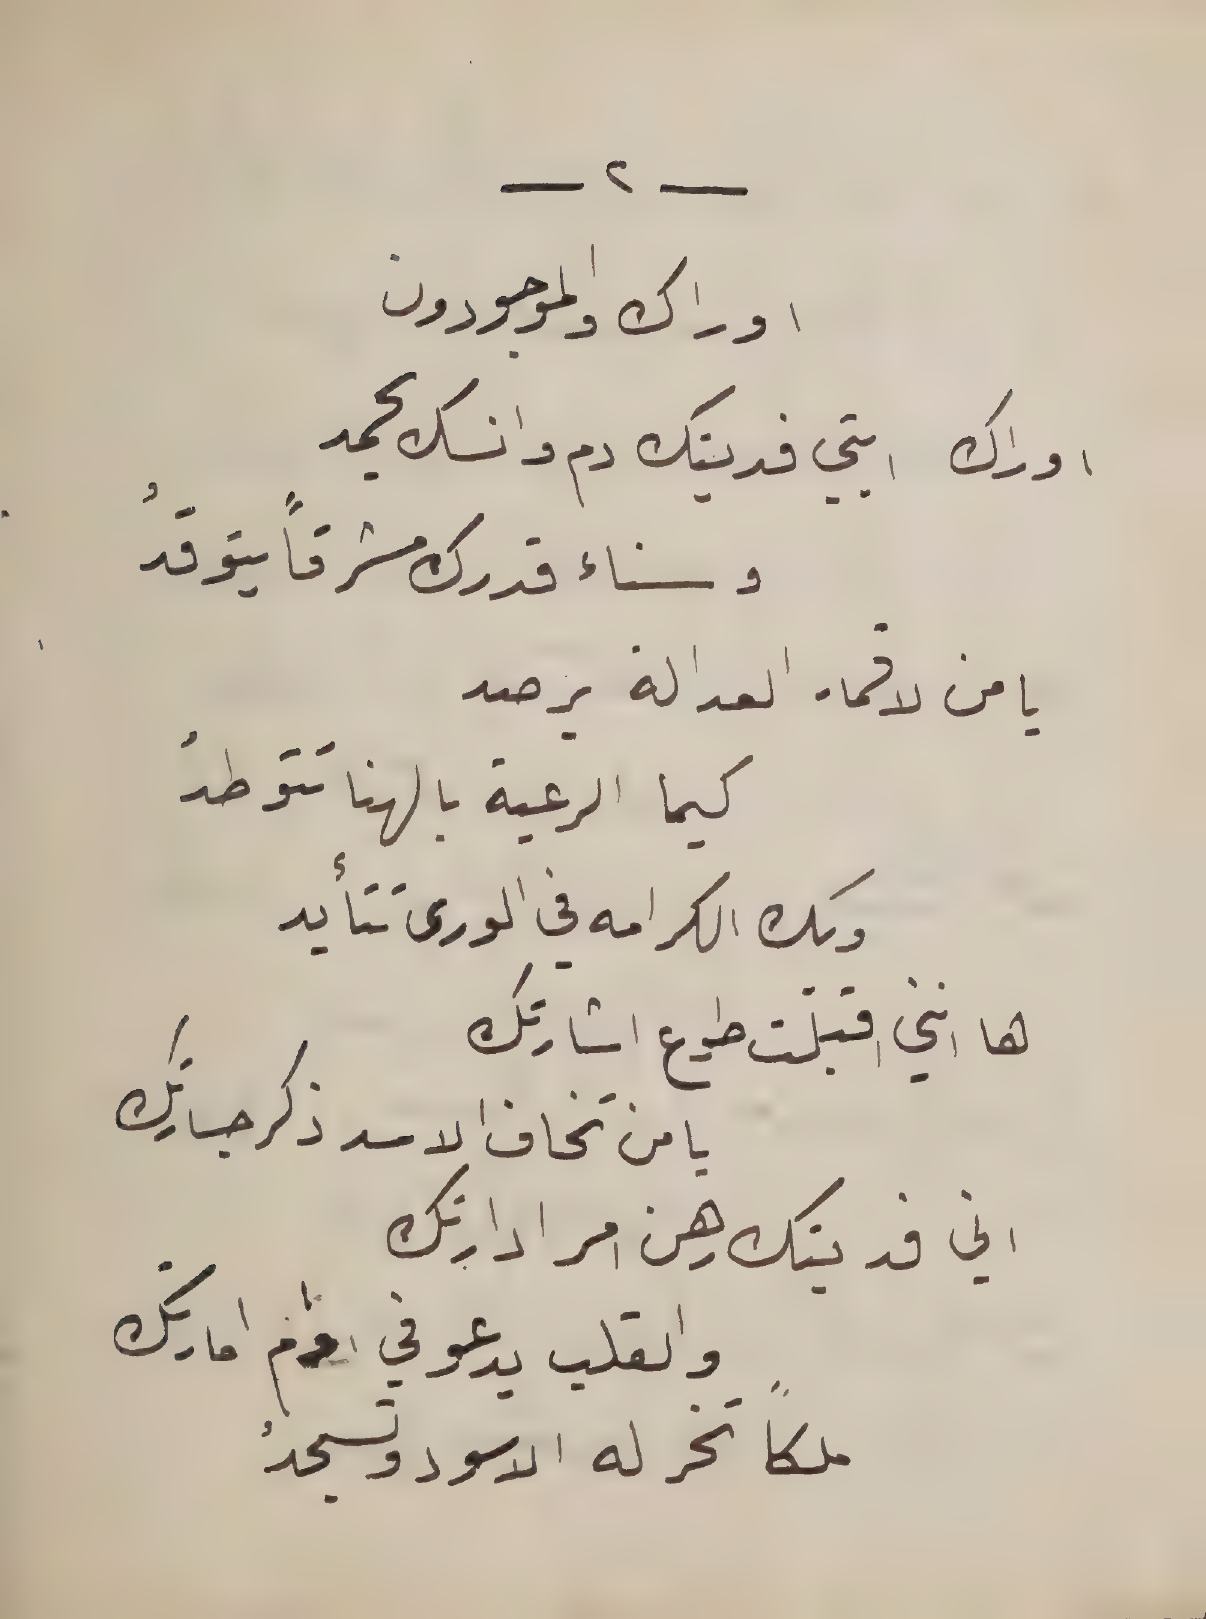 — ٢ —
اوراك والموجودون
اوراك ابتي فديتك دم وانسك يحمد
وسناء قدرك مشرقاً يتوقدُ
يا من لاقماء العدالة يرصد
كيما الرعية بالهنا تتوطدُ
وبك الكرامه في الورى تتأيد
ها انني اقتبلت طوع اشارتك
يا من تخاف الاسد ذكر جسارتك
اني فديتك رهن امر ادارتك
والقلب يدعو في امارتك
ملكاً تخر له الاسود وتسجدُ